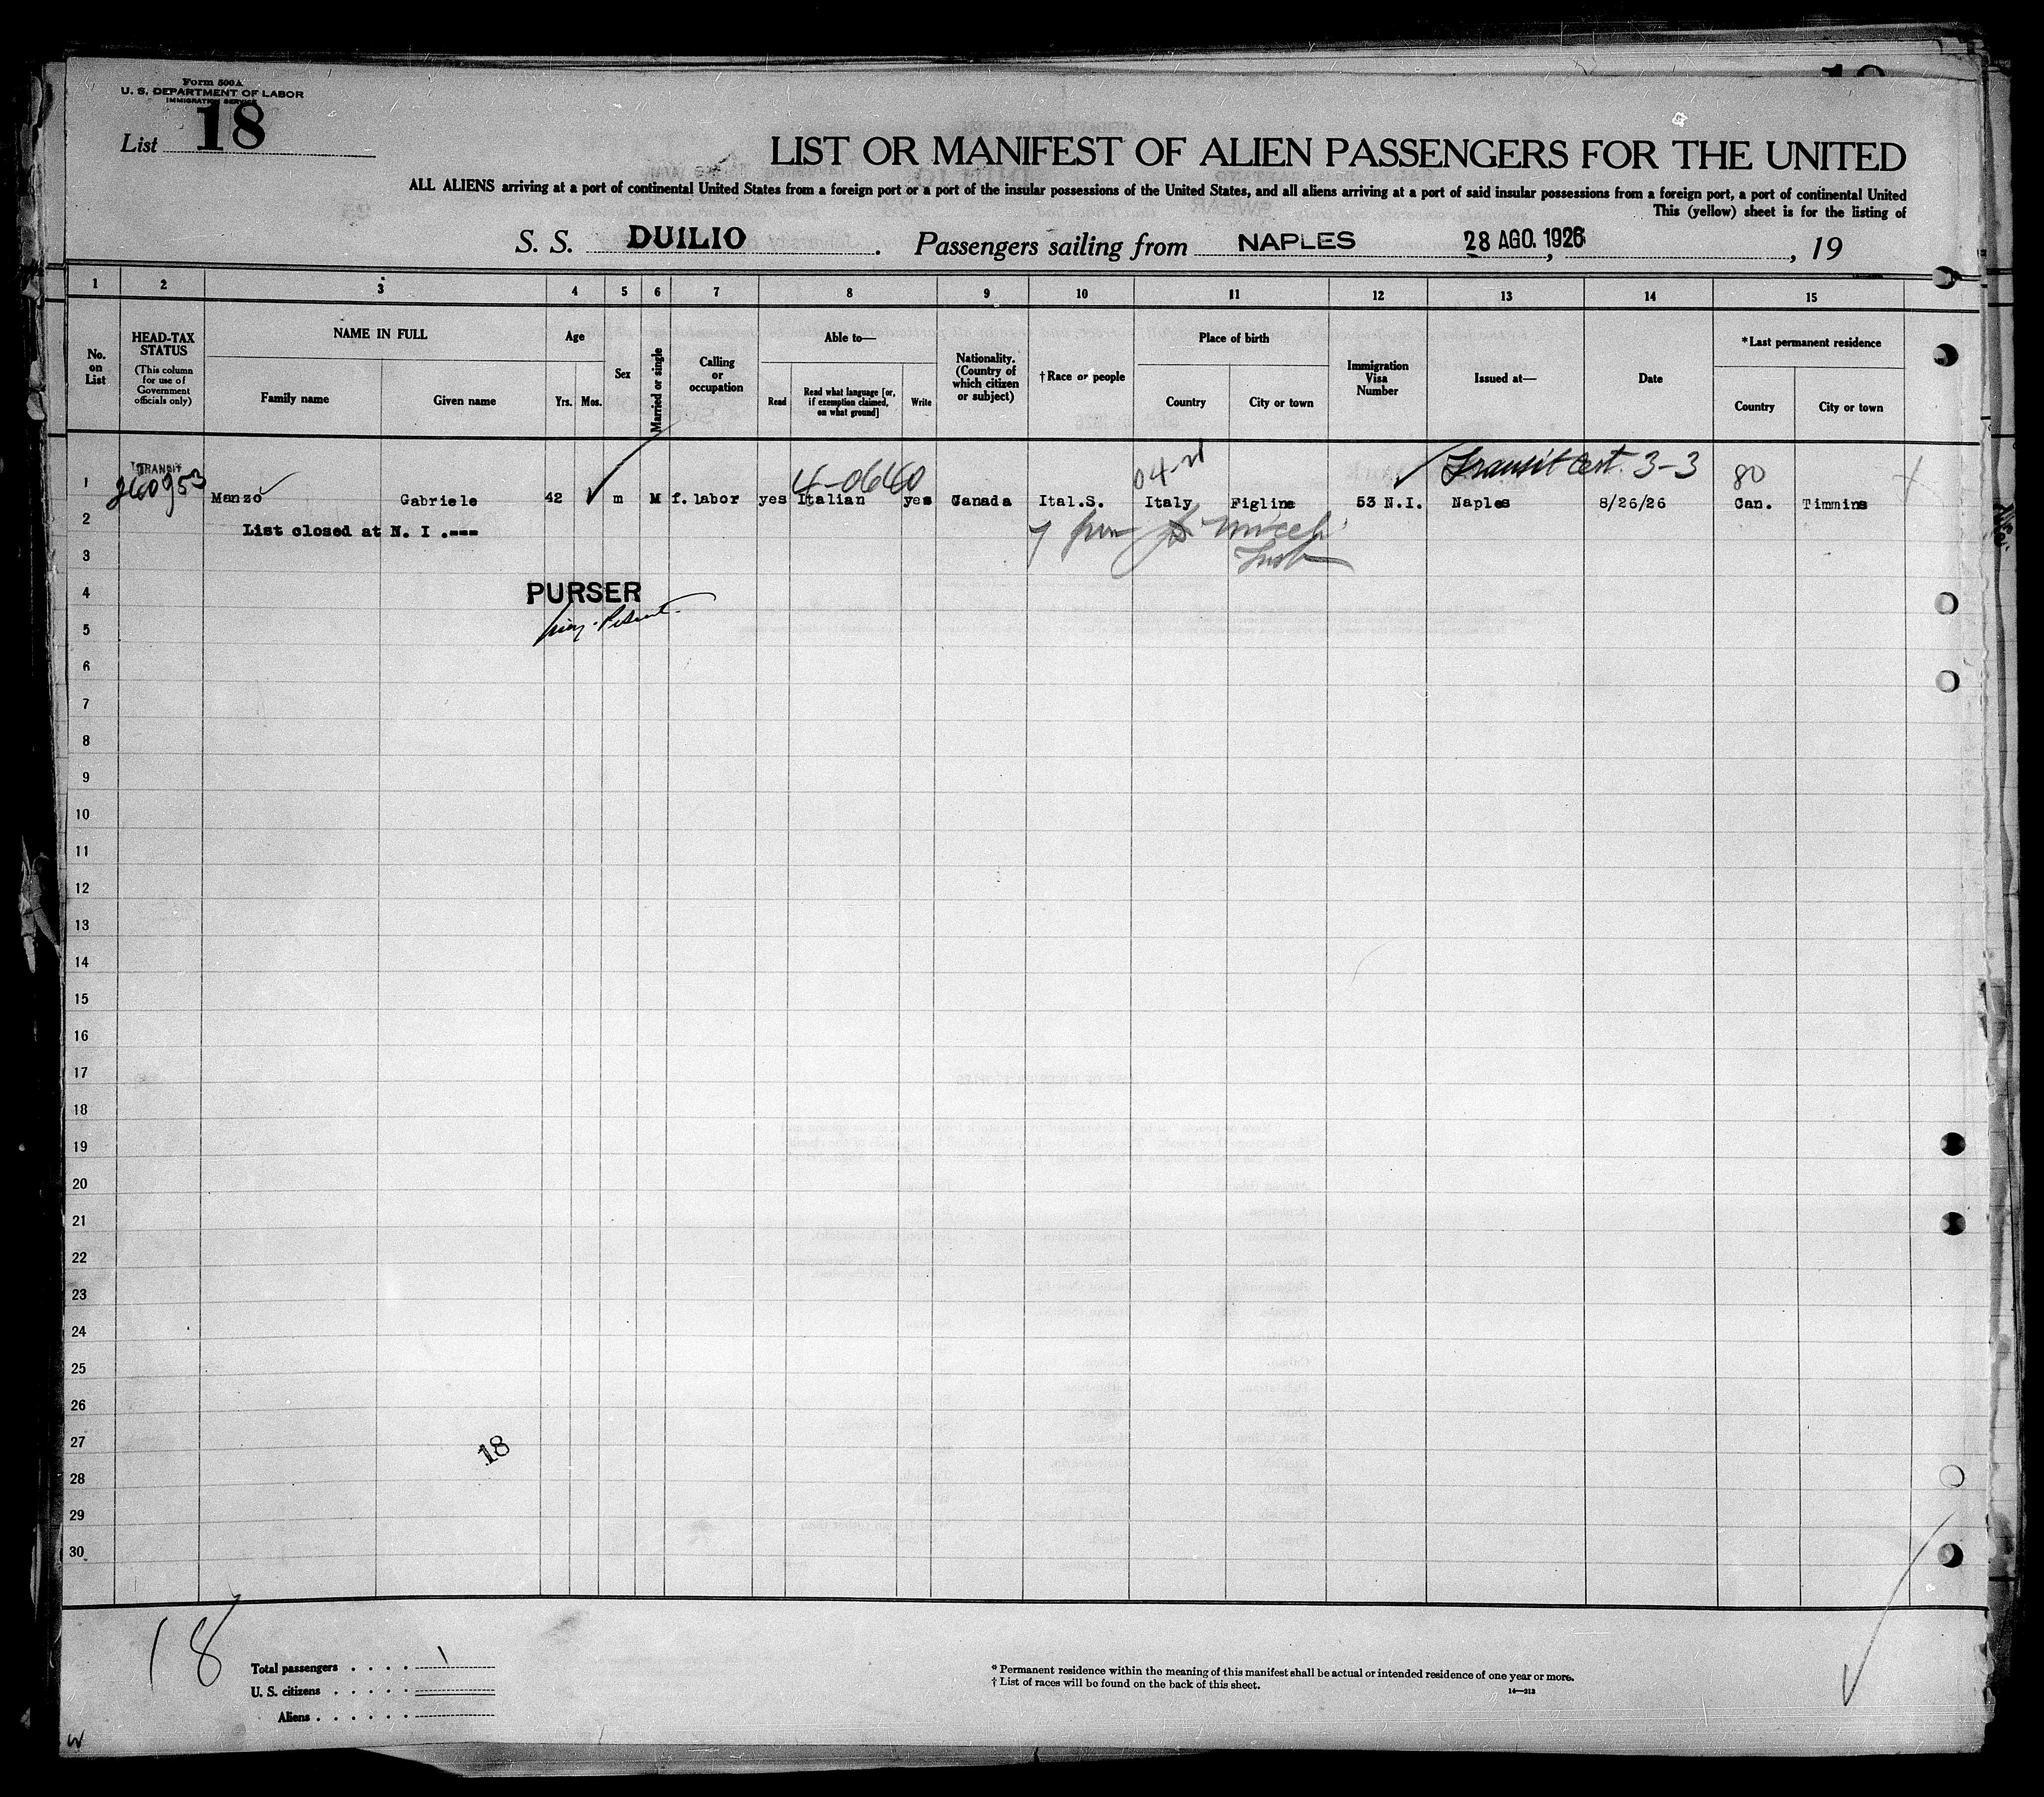 Form 500A
U. S. DEPARTMENT OF LABOR
IMMIGRATION SERVICE
List 18
LIST OR MANIFEST OF ALIEN PASSENGERS FOR THE UNITED
ALL ALIENS arriving at a port of continental United States from a foreign port or a port of the insular possessions of the United States, and all aliens arriving at a port of said insular possessions from a foreign port, a port of continental United
This (yellow) sheet is for the listing of
S. S. DUILIO. Passengers sailing from NAPLES 28 AGO. 1926, , 19
1 2 3 4 5 6 7 8 9 10 11 12 13 14 15
No. on List
HEAD-TAX STATUS
(This column for use of Government officials only)
NAME IN FULL
Family name
Given name
Age
Yrs. Mos.
Sex
Married or single
Calling or occupation
Able to—
Read
Read what language [or, if exemption claimed, on what ground]
Write
Nationality. (Country of which citizen or subject)
†Race or people
Place of birth
Country
City or town
Immigration Visa Number
Issued at—
Date
*Last permanent residence
Country
City or town
TRANSIT
04-21 Transit Cert. 3-3 80
1 Manzo Gabriele 42 m M f. labor yes Italian yes Canada Ital.S. Italy Figline 53 N.I. Naples 8/26/26 Can. Timmins
2 List closed at N. I .---
3
4 PURSER
5
6
7
8
9
10
11
12
13
14
15
16
17
18
19
20
21
22
23
24
25
26
27
18
28
29
30
18
Total passengers . . . . 1
U. S. citizens . . . . .
Aliens . . . . . .
* Permanent residence within the meaning of this manifest shall be actual or intended residence of one year or more.
† List of races will be found on the back of this sheet.
14—212
W